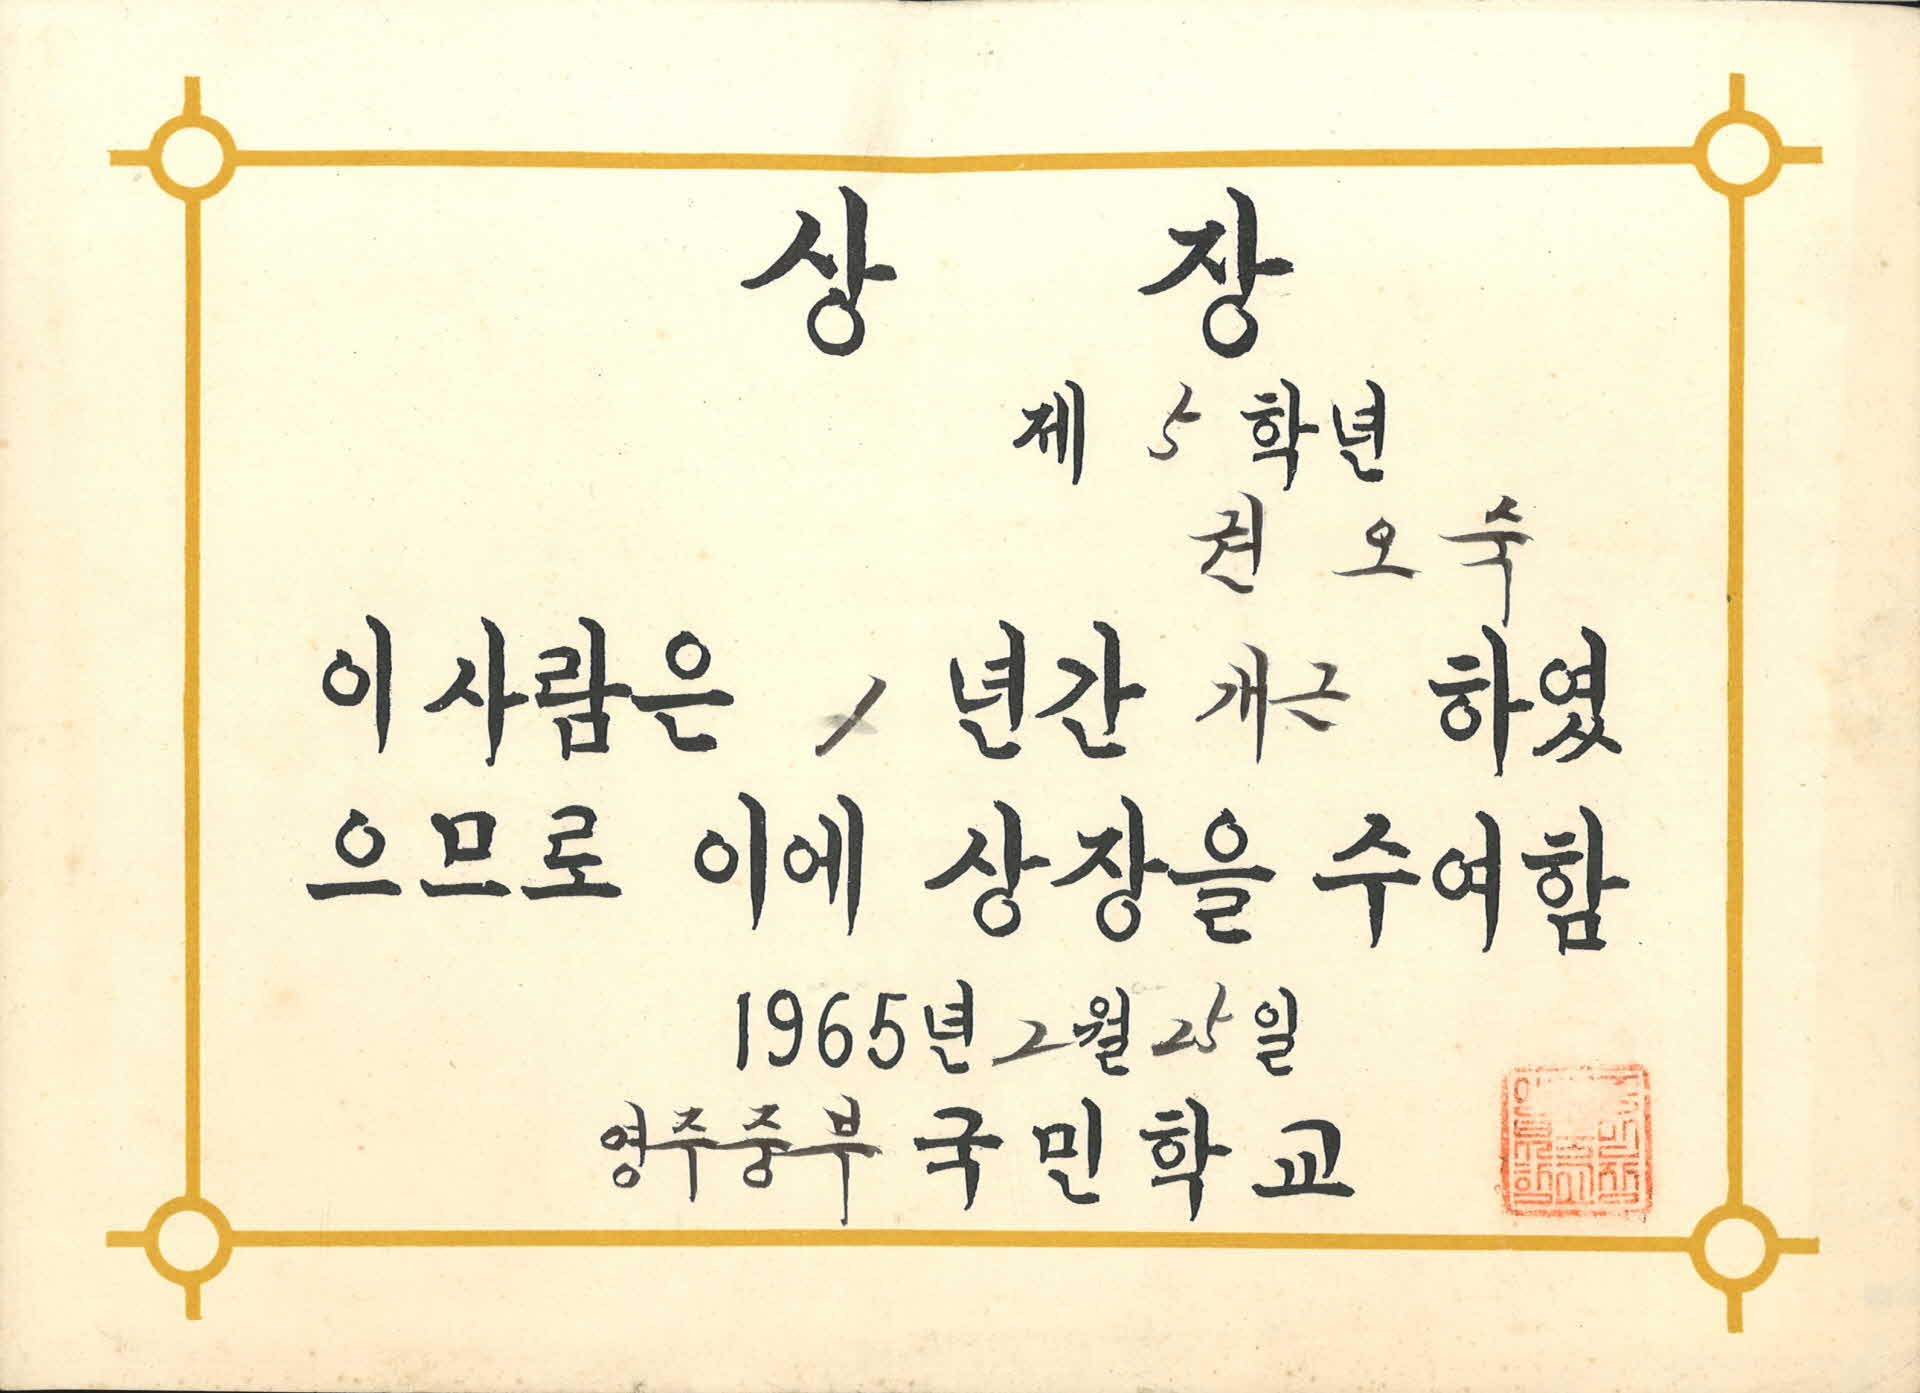 상 장
제 5 학년
권 오 숙
이 사람은 1 년간 개근 하였
으므로 이에 상장을 수여함
1965년 2월 25일
영주중부 국민학교